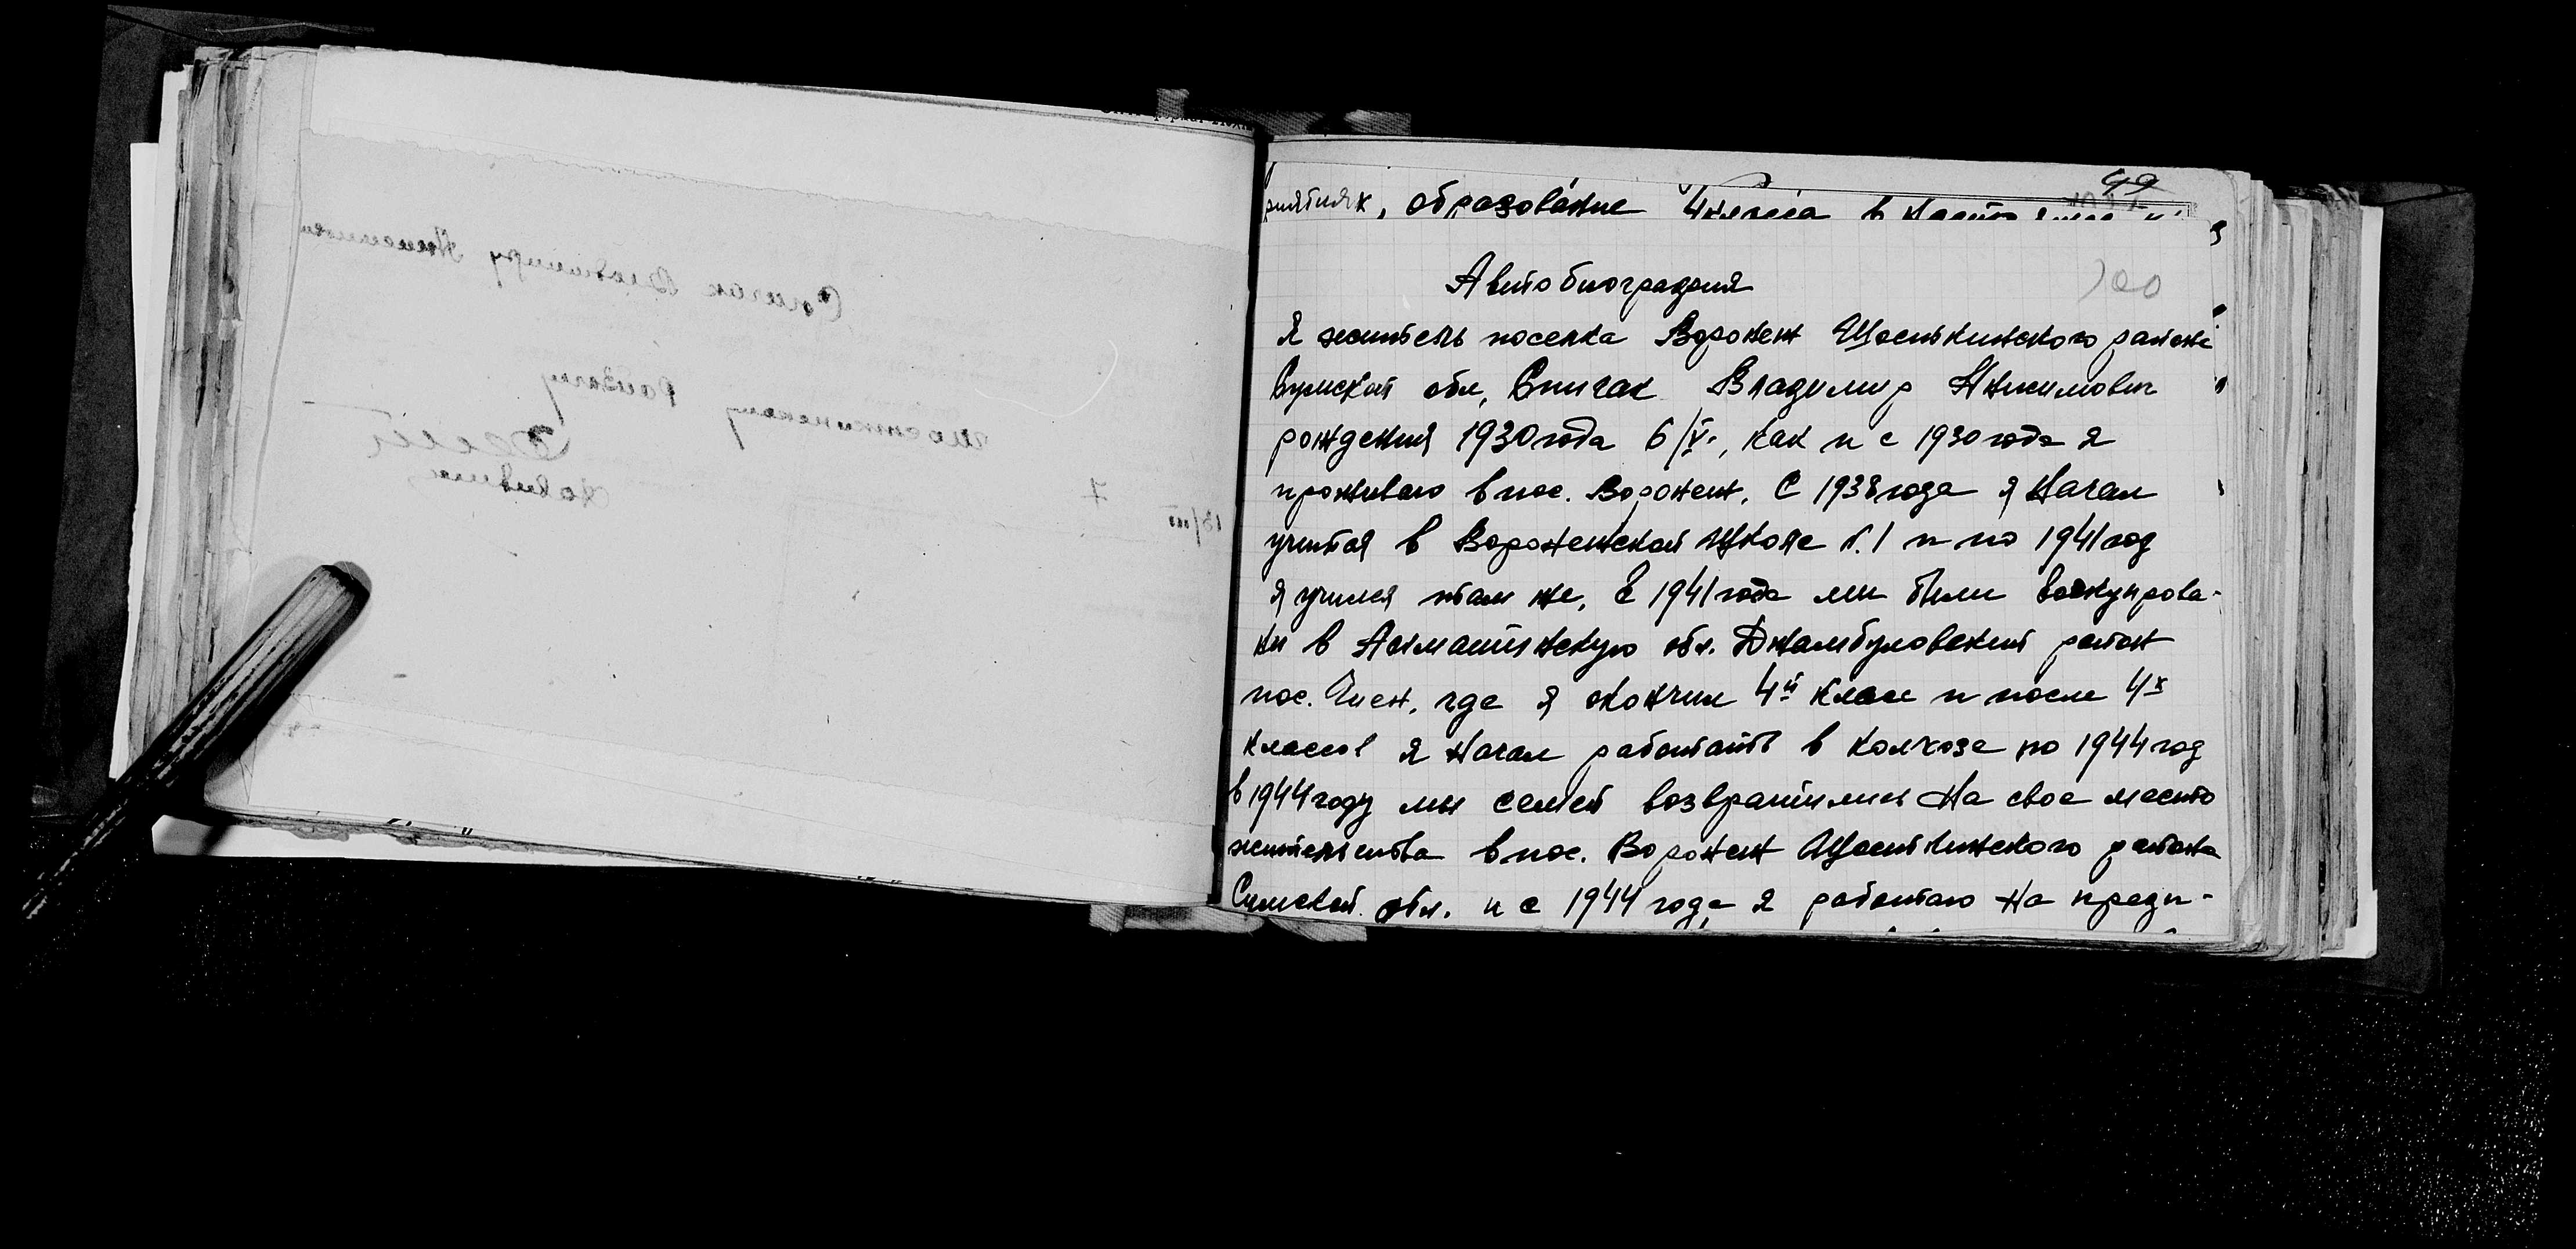 99
риятиях, образование 4 класса в настоящее
100
Автобиография
Я житель поселка Воронеж Шосткинского района
Сумской обл, Спичак Владимир Анисимович
рождения 1930 года 6/V., как и с 1930 года я
проживаю в пос. Воронеж. С 1938 года я начал
учится в Воронежской школе №1 и по 1941 год
я учился там же. С 1941 года ми были
ни в Алмаатинскую обл. Джамбуловский район
пос. где я окончил 4й клас и после 4х
классов я начал работать в колхозе по 1944 год
в 1944 году мы семей возвратились на свое место
жительства в пос. Воронеж Шосткинского района
Сумской обл. и с 1944 года я работаю на предп-